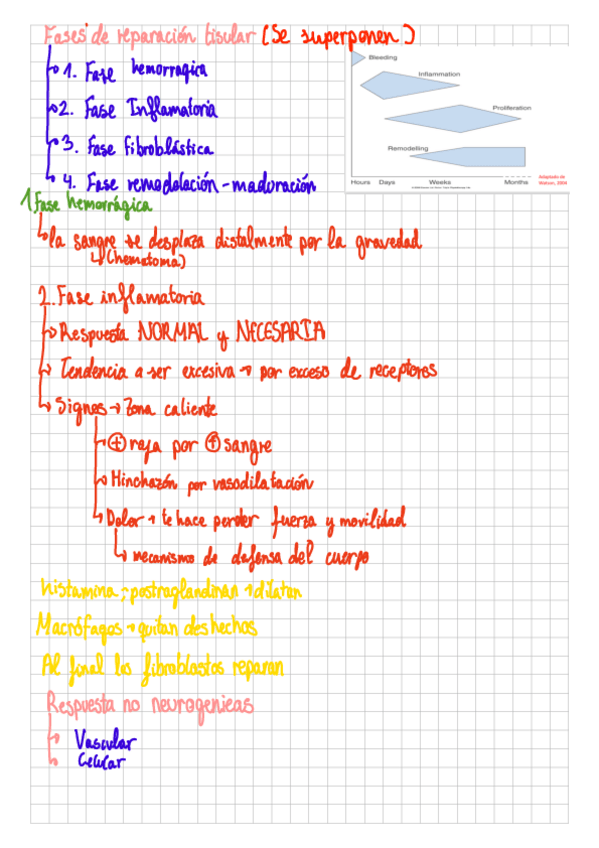 Fases de reparación tisular (Se superponen)
1. Fase hemorragica
2. Fase Inflamatoria
3. Fase fibroblástica
4. Fase remodelación - maduración
Bleeding
Inflammation
Proliferation
Remodelling
Hours Days Weeks Months
Adaptado de
Watson, 2004
1 Fase hemorrágica
la sangre se desplaza distalmente por la gravedad
(hematoma)
2. Fase inflamatoria
Respuesta NORMAL y NECESARIA
Tendencia a ser excesiva → por exceso de receptores
Signos → Zona caliente
⊕ roja por ↑ sangre
Hinchazón por vasodilatación
Dolor → te hace perder fuerza y movilidad
mecanismo de defensa del cuerpo
histamina; postraglandinan → dilatan
Macrófagos → quitan deshechos
Al final los fibroblastos reparan
Respuesta no neurogenicas
Vascular
Celular